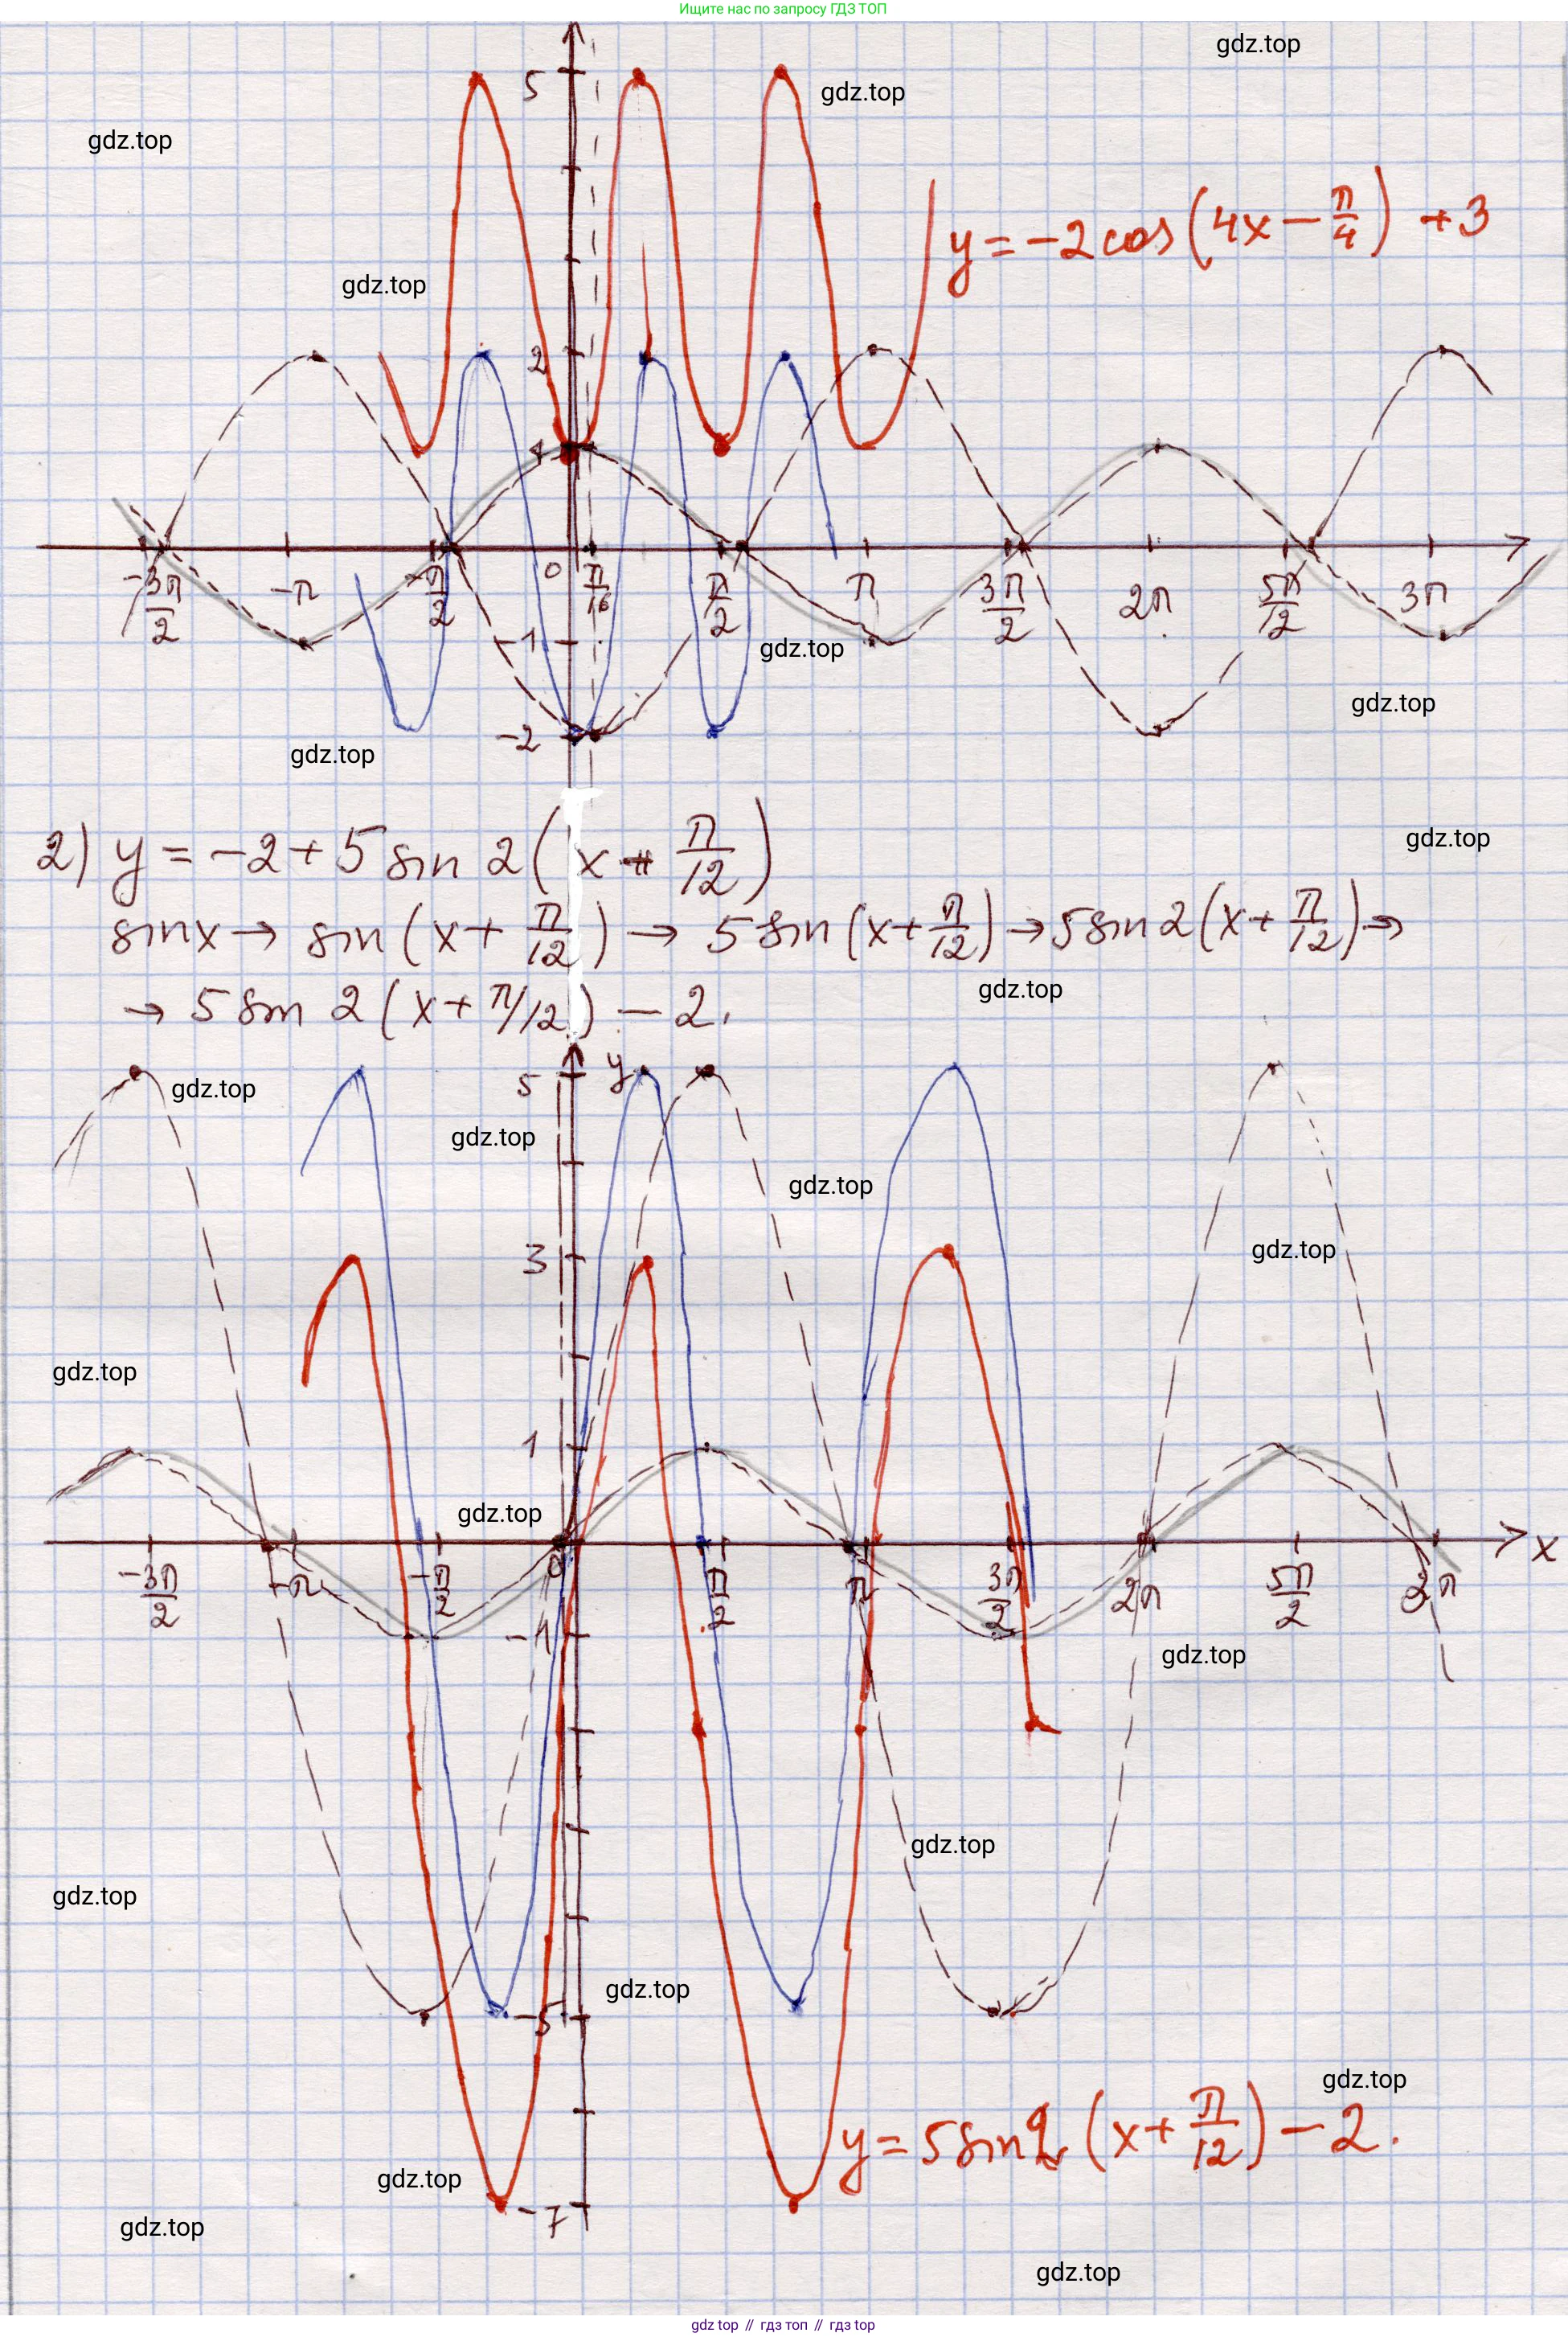 Ищите нас по запросу ГДЗ ТОП
gdz.top
gdz.top
gdz.top
5
y = -2 cos (4x - π/4) + 3
gdz.top
2
1
-3π/2 -π -π/2 0 π/16 π/2 π 3π/2 2π 5π/12 3π
-1
gdz.top
gdz.top
-2
gdz.top
2) y = -2 + 5 sin 2 (x + π/12)
gdz.top
sin x → sin (x + π/12) → 5 sin (x + π/12) → 5 sin 2 (x + π/12) →
→ 5 sin 2 (x + π/12) - 2.
gdz.top
y
5
gdz.top
gdz.top
gdz.top
3
gdz.top
gdz.top
1
gdz.top
-3π/2 -π -π/2 0 π/2 π 3π/2 2π 5π/2 3π x
-1
gdz.top
gdz.top
gdz.top
gdz.top
-5
gdz.top
y = 5 sin 2 (x + π/12) - 2.
gdz.top
-7
gdz.top
gdz.top
gdz top // гдз топ // gdz.top